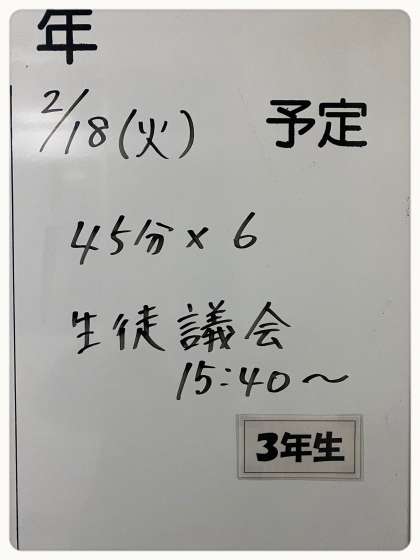 年
2/18(火) 予定
45分×6
生徒議会
15:40～
3年生